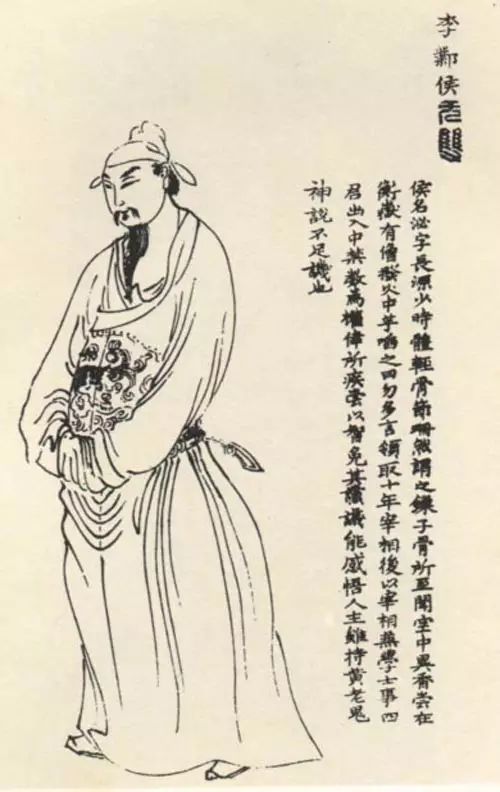 李鄴侯
侯名泌字長源少時體輕骨節珊然謂之鏁子骨所至聞室中異香嘗在
衡嶽有僧撥火中芋啗之曰勿多言領取十年宰相後以宰相兼學士事四
召出入中禁數為權倖所疾嘗以智免其讜議能感悟人主雖持黃老鬼
神說不足譏也